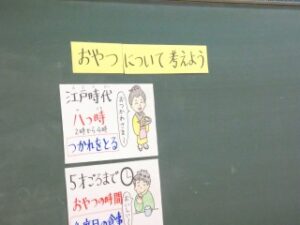 おやつについて考えよう
江戸時代
八つ時
2時から4時
つかれをとる
おつかれさま
5才ごろまで
おやつの時間